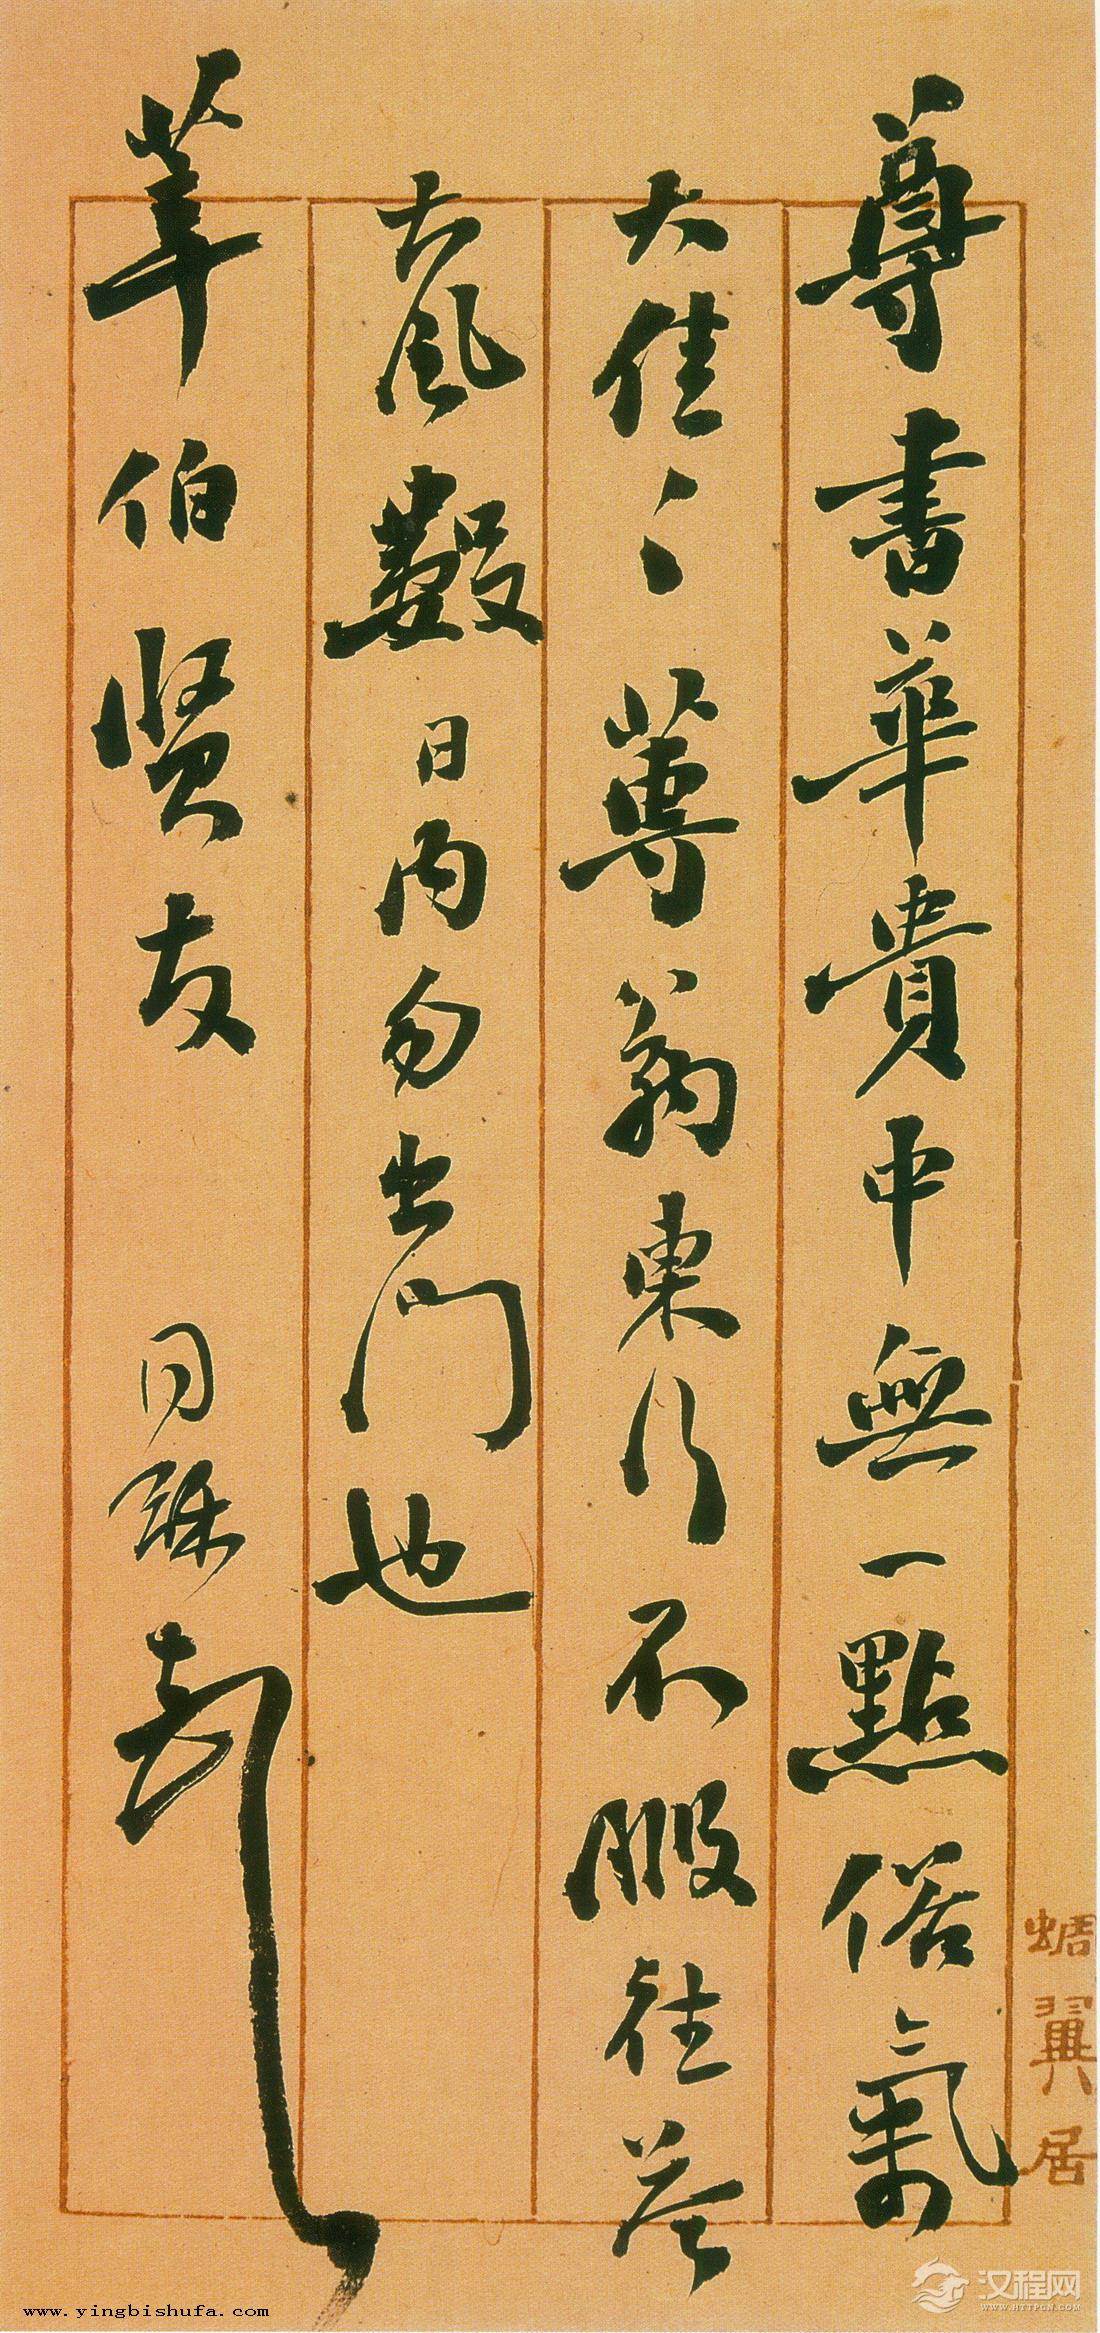 尊書華貴中無一點俗氣
大佳〻尊翁東行不暇往答
大風數日內勿出門也
華伯賢友
同龢
蜩翼居
www.yingbishufa.com
汉程网
WWW.HTTPCN.COM